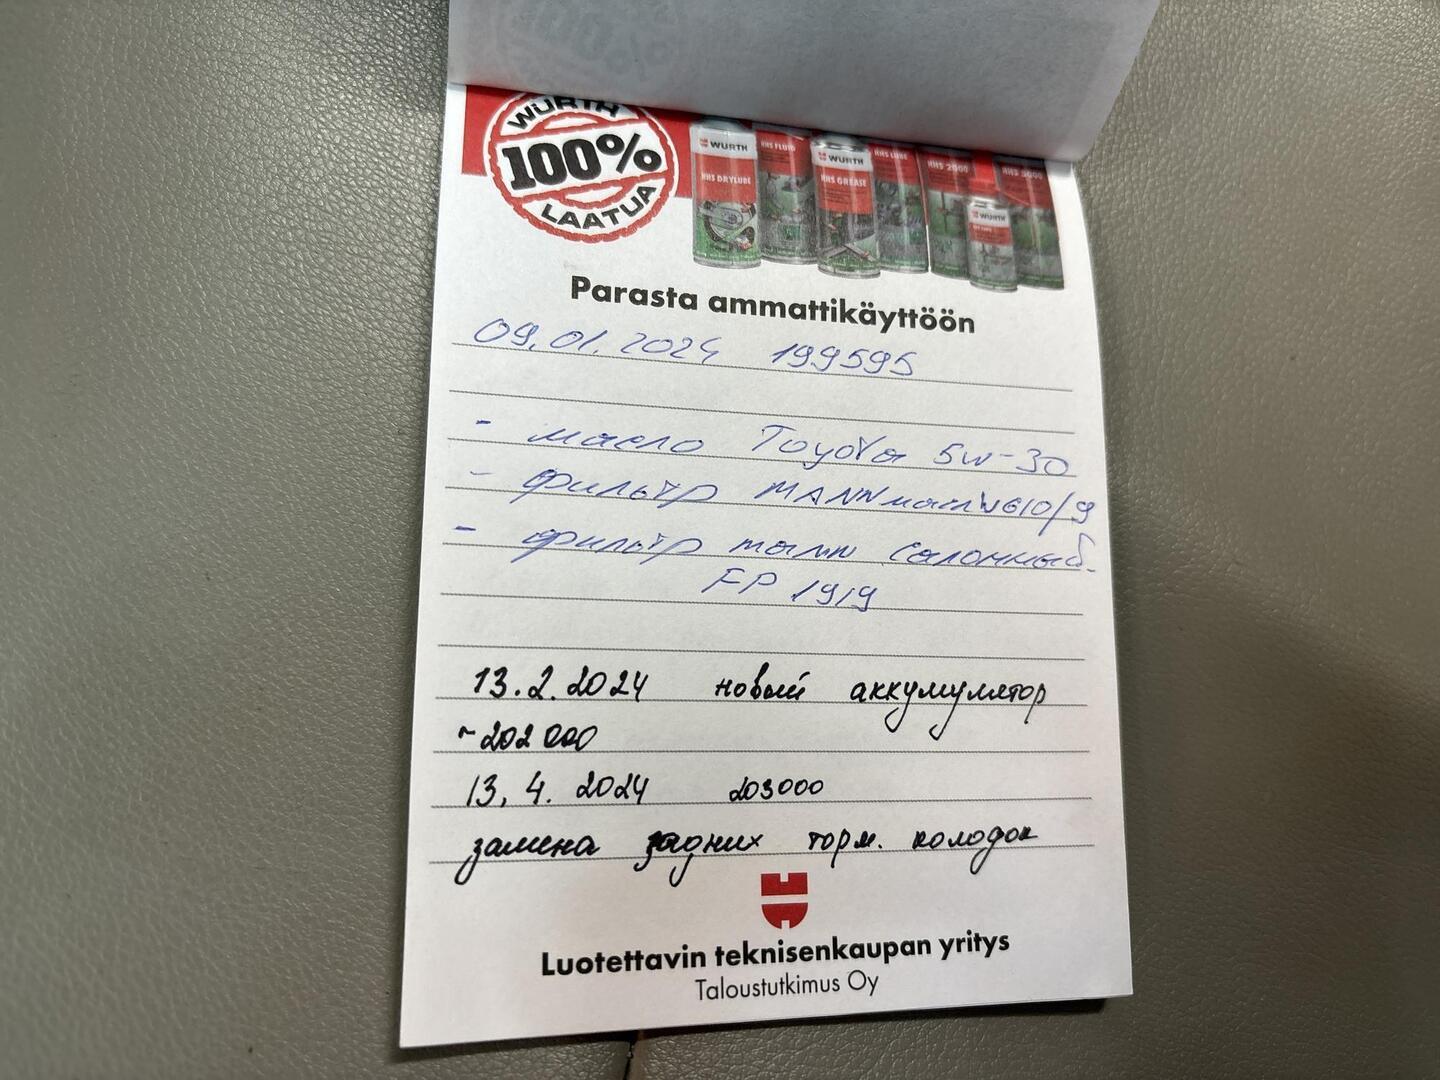 WÜRTH
100%
LAATUA
WÜRTH
HHS DRYLUBE
HHS FLUID
WÜRTH
HHS GREASE
HHS LUBE
HHS 2000
WÜRTH
HHS 5000
Parasta ammattikäyttöön
09.01.2024 199595
- масло Toyota 5W-30
- фильтр MANN W610/9
- фильтр манн салонный
FP 1919
13.2.2024 новый аккумулятор
~202 000
13.4.2024 203000
замена задних торм. колодок
Luotettavin teknisenkaupan yritys
Taloustutkimus Oy